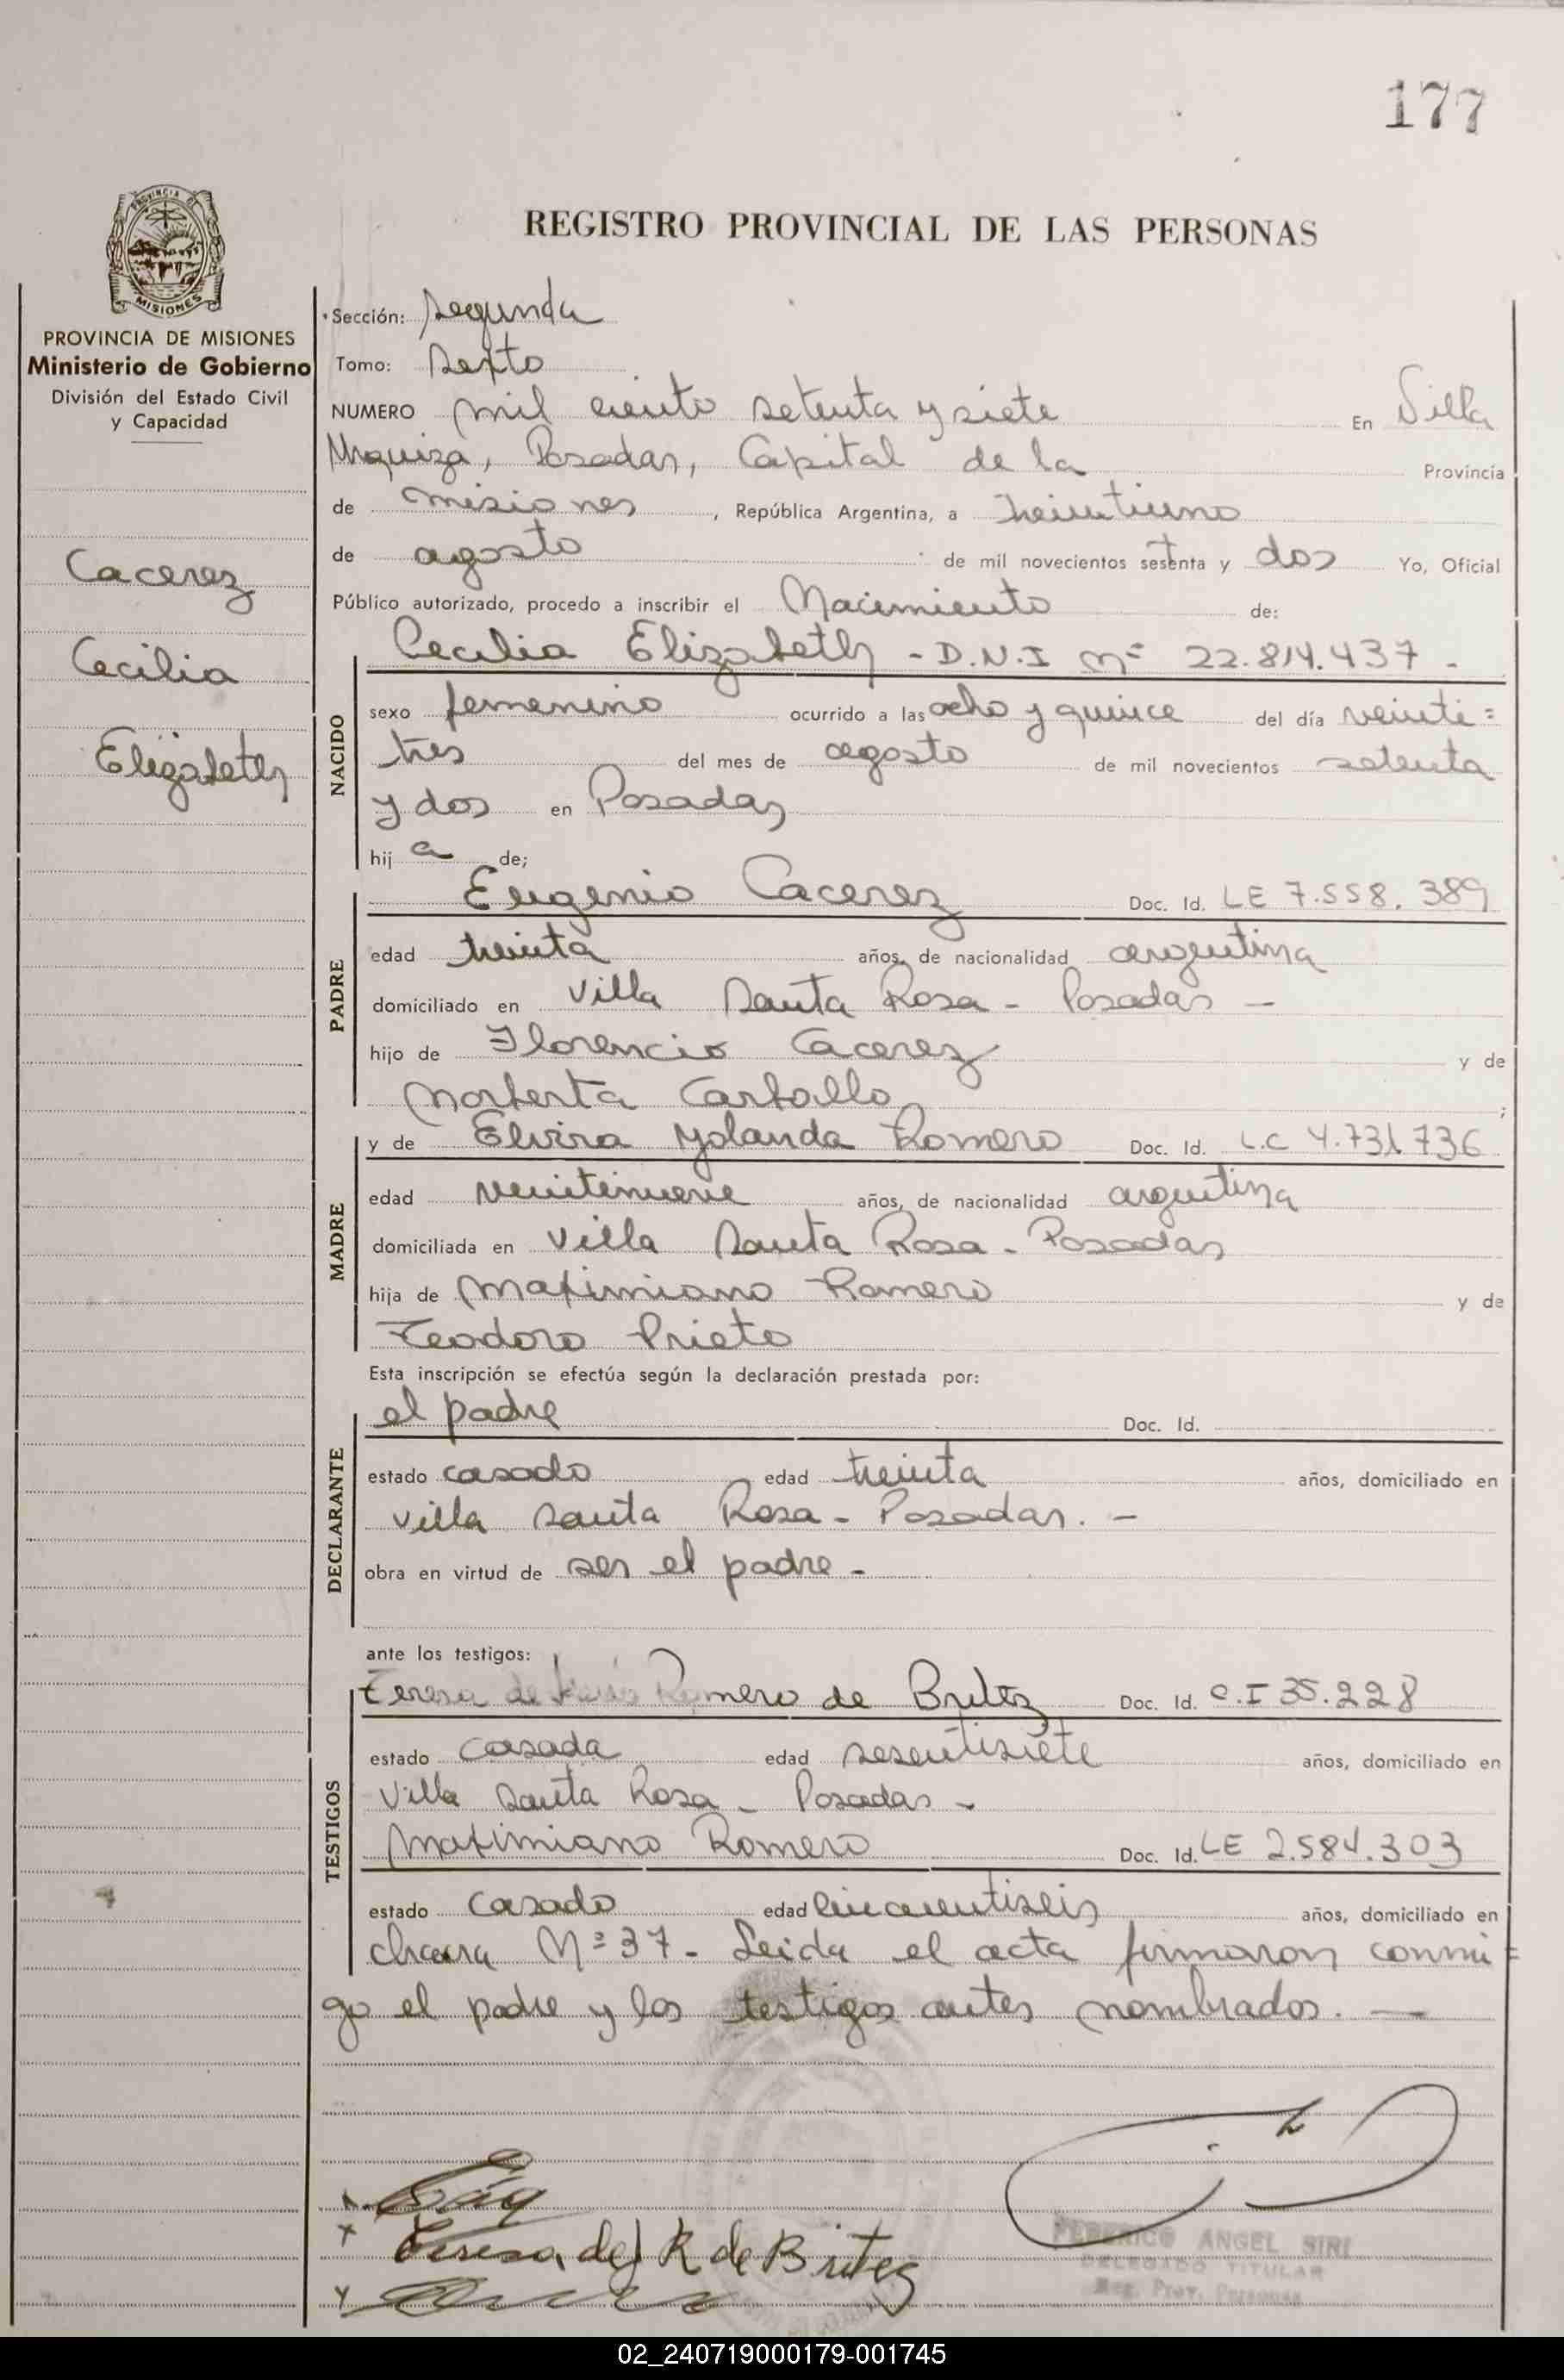 177
PROVINCIA DE
MISIONES
REGISTRO PROVINCIAL DE LAS PERSONAS
PROVINCIA DE MISIONES
Ministerio de Gobierno
División del Estado Civil
y Capacidad
Cacerez
Cecilia
Elizabeth
Sección: segunda
Tomo: sexto
NUMERO mil ciento setenta y siete En Villa
Urquiza, Posadas, Capital de la Provincia
de Misiones, República Argentina, a treintiuno
de agosto de mil novecientos setenta y dos Yo, Oficial
Público autorizado, procedo a inscribir el Nacimiento de:
NACIDO
Cecilia Elizabeth - D.N.I Nº 22.814.437 -
sexo femenino ocurrido a las ocho y quince del día veinti=
tres del mes de agosto de mil novecientos setenta
y dos en Posadas
hij a de;
PADRE
Eugenio Cacerez Doc. Id. LE 7.558.389
edad treinta años, de nacionalidad argentina
domiciliado en Villa Santa Rosa - Posadas -
hijo de Florencio Cacerez y de
Norberta Carballo ;
MADRE
y de Elvira Yolanda Romero Doc. Id. L.C 4.731736
edad veintinueve años, de nacionalidad argentina
domiciliada en Villa Santa Rosa - Posadas
hija de Maximiano Romero y de
Teodoro Prieto
Esta inscripción se efectúa según la declaración prestada por:
DECLARANTE
el padre Doc. Id.
estado casado edad treinta años, domiciliado en
Villa Santa Rosa - Posadas. -
obra en virtud de ser el padre -
ante los testigos:
TESTIGOS
Teresa de Jesús Romero de Britez Doc. Id. C.I 35.228
estado casada edad sesentisiete años, domiciliado en
Villa Santa Rosa - Posadas -
Maximiano Romero Doc. Id. LE 2.584.303
estado casado edad cincuentiseis años, domiciliado en
chacra Nº 37 - Leida el acta firmaron conmi=
go el padre y los testigos antes nombrados. —
Teresa, del R de Britez
FEDERICO ANGEL SIRI
DELEGADO TITULAR
Reg. Prov. Personas
02_240719000179-001745